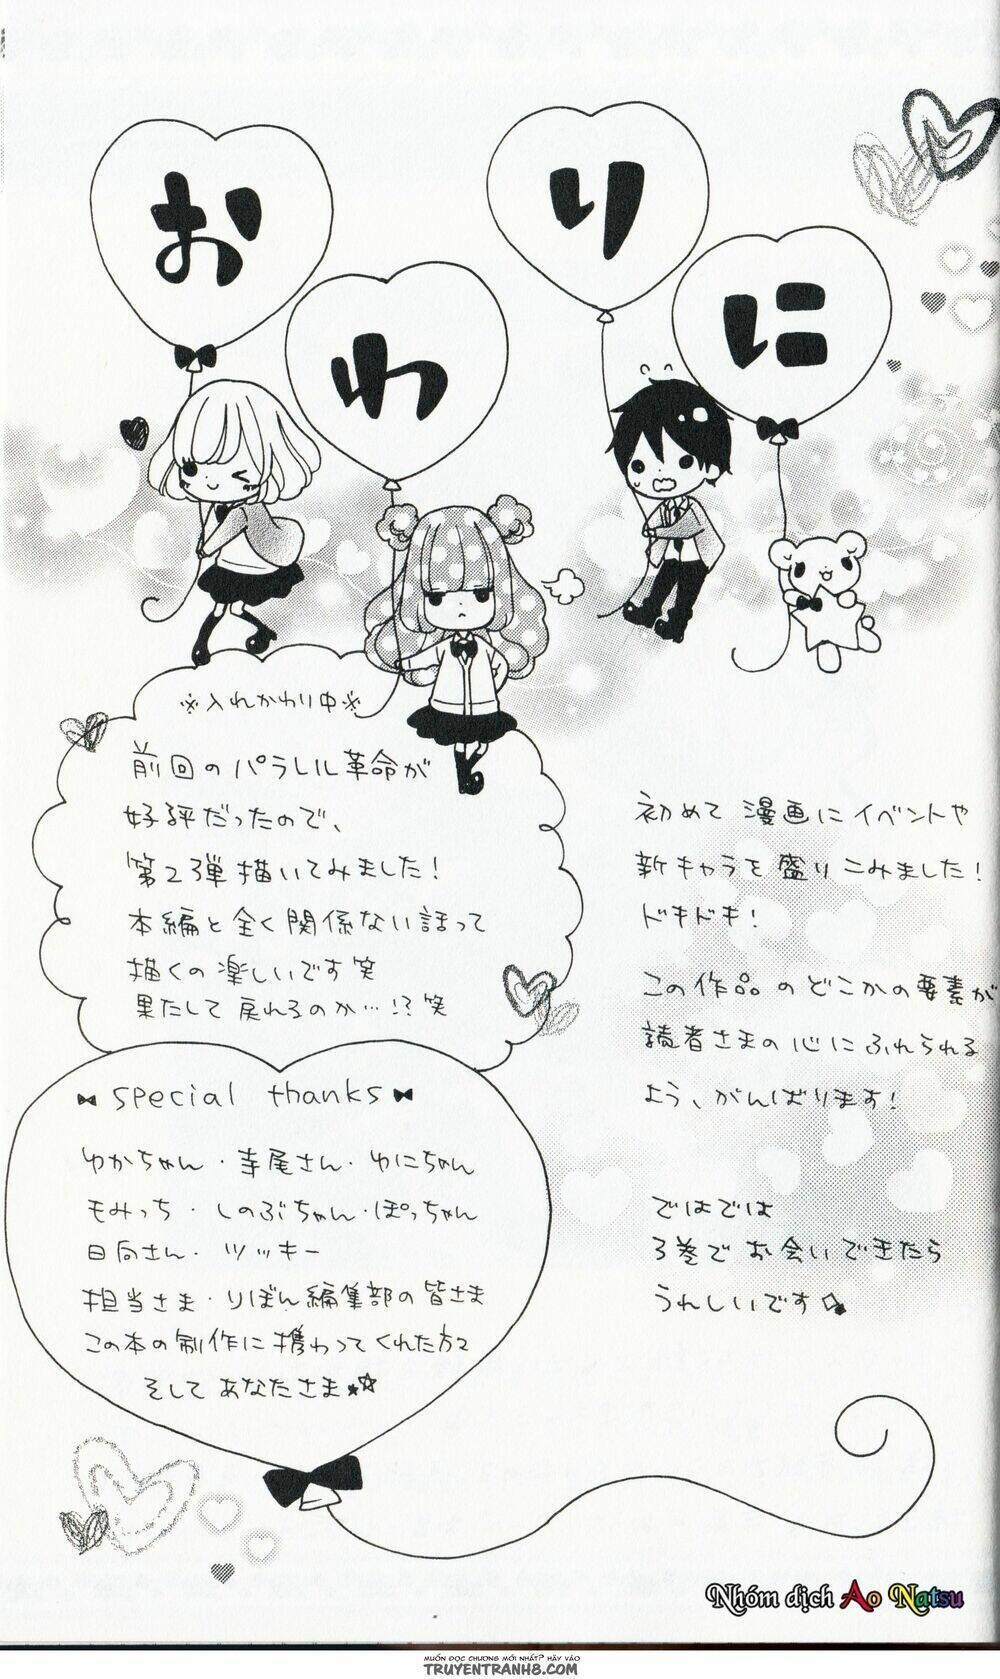 おわりに
※入れかわり中※
前回のパラレル革命が
好評だったので、
第2弾描いてみました!
本編と全く関係ない話って
描くの楽しいです笑
果たして戻れるのか…!?笑
special thanks
ゆかちゃん・寺尾さん・ゆにちゃん
もみっち・しのぶちゃん・ぽっちゃん
日向さん・ツッキー
担当さま・りぼん編集部の皆さま
この本の制作に携わってくれた方々
そしてあなたさま
初めて漫画にイベントや
新キャラを盛りこみました!
ドキドキ!
この作品のどこかの要素が
読者さまの心にふれられる
よう、がんばります!
ではでは
3巻でお会いできたら
うれしいです
Nhóm dịch Ao Natsu
MUỐN ĐỌC CHƯƠNG MỚI NHẤT? HÃY VÀO
TRUYENTRANH8.COM